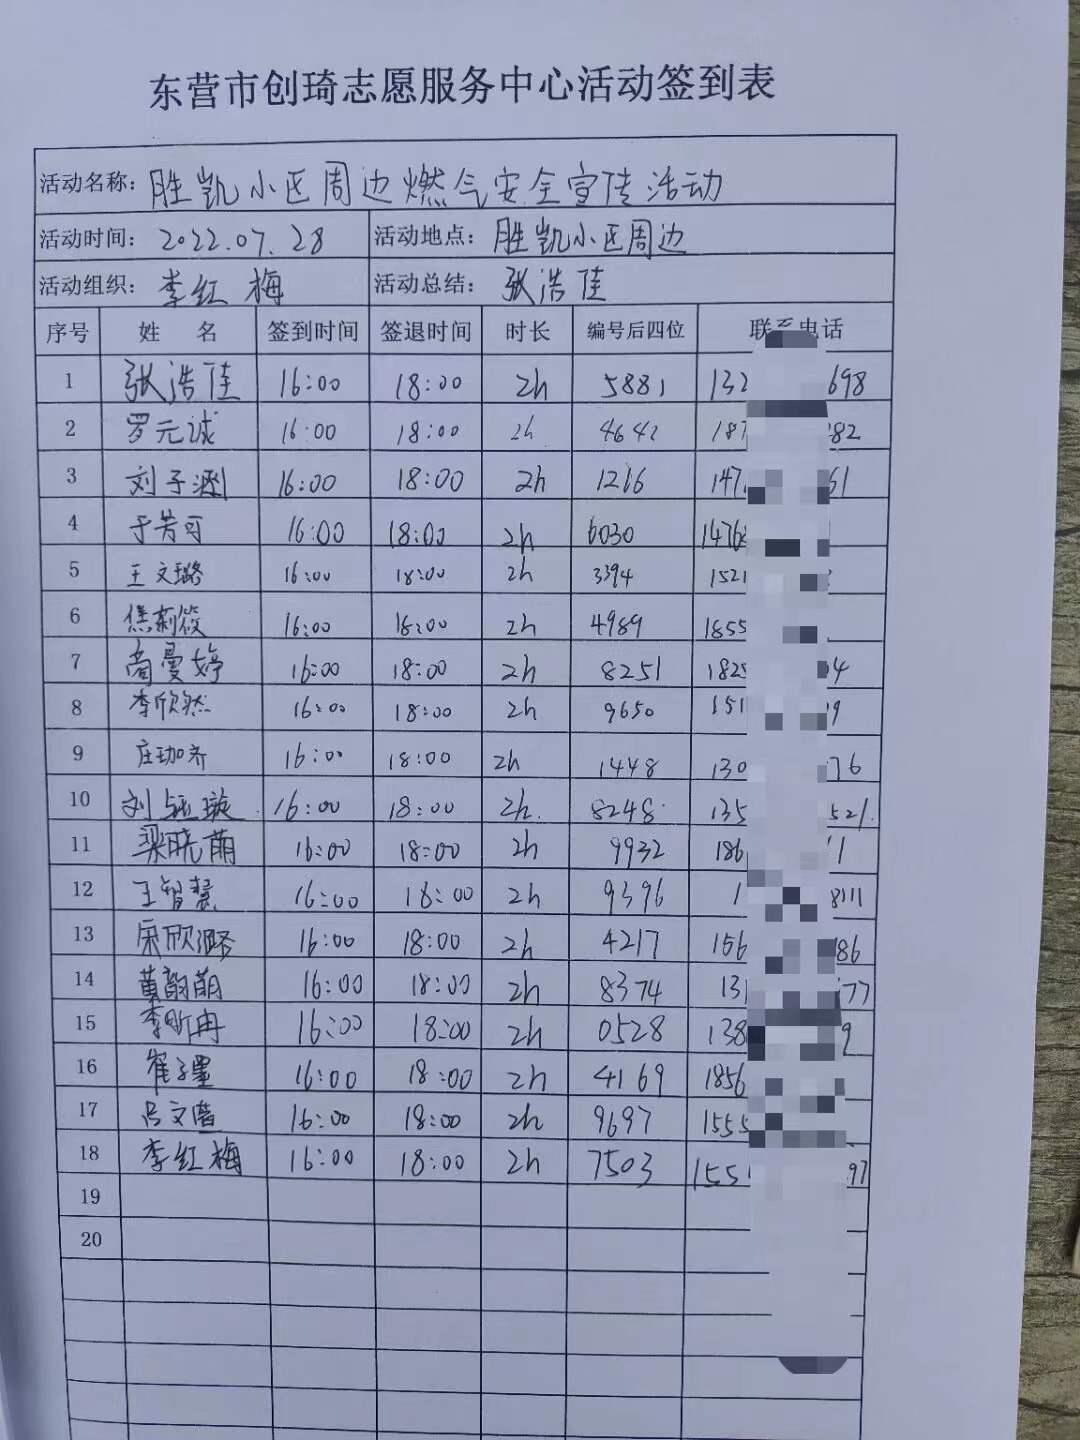 东营市创琦志愿服务中心活动签到表
活动名称: 胜凯小区周边燃气安全宣传活动
活动时间: 2022.07.28 活动地点: 胜凯小区周边
活动组织: 李红梅 活动总结: 张浩佳
序号 姓名 签到时间 签退时间 时长 编号后四位 联系电话
1 张浩佳 16:00 18:00 2h 5881 132 698
2 罗元诚 16:00 18:00 2h 4642 187 282
3 刘子渊 16:00 18:00 2h 1216 147 61
4 于芳可 16:00 18:00 2h 6030 1476
5 王文璐 16:00 18:00 2h 3394 1521
6 焦莉筱 16:00 18:00 2h 4989 1855
7 高曼婷 16:00 18:00 2h 8251 182 4
8 李欣然 16:00 18:00 2h 9650 151 9
9 庄珈齐 16:00 18:00 2h 1448 130 76
10 刘钰璇 16:00 18:00 2h 8248 135 521
11 梁晓萌 16:00 18:00 2h 9932 186 1
12 王智慧 16:00 18:00 2h 9396 1 8111
13 欣璐 16:00 18:00 2h 4217 156 86
14 黄韵萌 16:00 18:00 2h 8374 131 77
15 李昕冉 16:00 18:00 2h 0528 138 9
16 崔子墨 16:00 18:00 2h 4169 1856
17 吕文 16:00 18:00 2h 9697 1555
18 李红梅 16:00 18:00 2h 7503 155 97
19
20